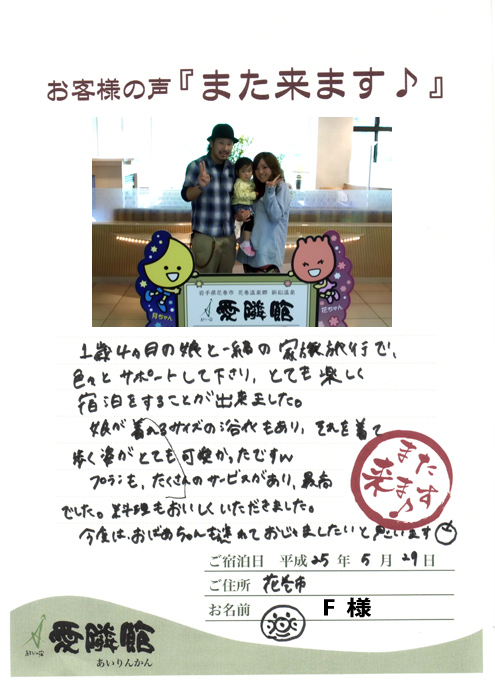 お客様の声『また来ます♪』
岩手県花巻市 花巻温泉郷 新鉛温泉
愛隣館
月ちゃん
花ちゃん
1歳4ヵ月の娘と一緒の家族旅行で、
色々とサポートして下さり、とても楽しく
宿泊をすることが出来ました。
娘が着れるサイズの浴衣もあり、それを着て
歩く姿がとても可愛かったですm
プランも、たくさんのサービスがあり、最高
でした。料理もおいしくいただきました。
今度は、おばあちゃんも連れておじゃましたいと思います
また来ます♪
ご宿泊日 平成25年5月29日
ご住所 花巻市
お名前 F 様
愛隣館
あいりんかん